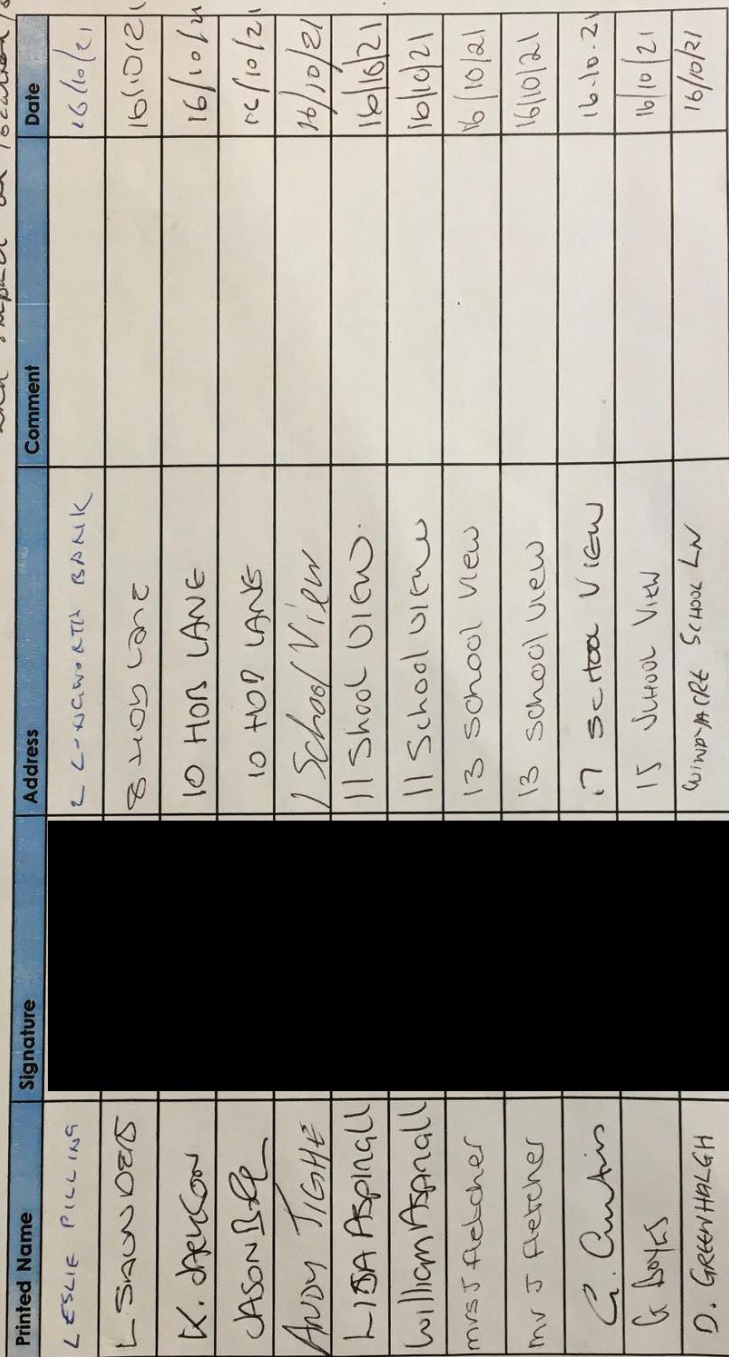 Printed Name Signature Address Comment Date
LESLIE PILLING BANK 16/10/21
L SAUNDERS 8 HOB Lane 16/10/21
K. JACKSON 10 HOB LANE 16/10/21
JASON 10 HOB LANE 16/10/21
ANDY TIGHE 1 School View 16/10/21
LISA Aspinall 11 Shool VIEW. 16/10/21
William Aspinall 11 School View 16/10/21
mrs J fletcher 13 School View 16/10/21
mr J fletcher 13 School View 16/10/21
G. Curtis 17 School VIEW 16.10.21
G Boyes 15 SCHOOL VIEW 16/10/21
D. GREENHALGH WINDYACRE SCHOOL LN 16/10/21